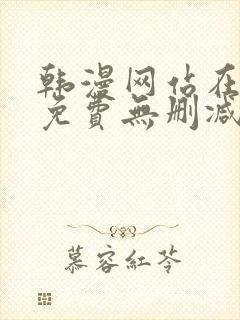 韩漫网站在
免費無删减
慕容紅苓